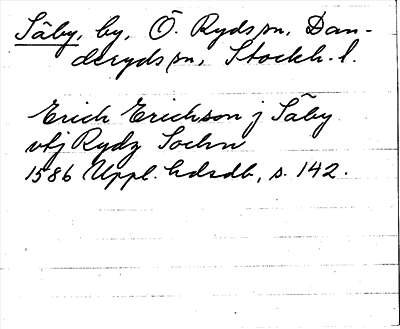 Säby, by, Ö. Ryds sn, Dan-
deryds sn, Stockh. l.
Erich Erichson j Säby
vtj Rydz Sochn
1586 Uppl. hdsdb, s. 142.